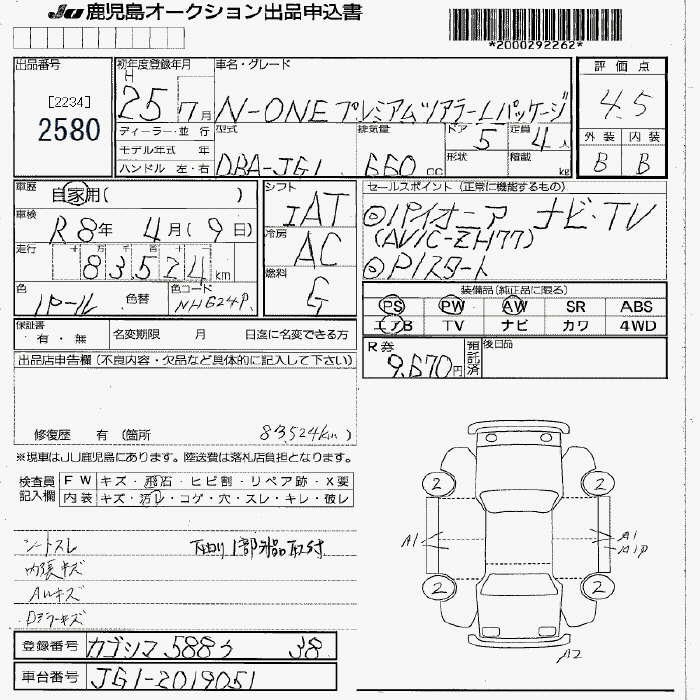 JU 鹿児島オークション出品申込書
*2000292262*
出品番号 初年度登録年月 車名・グレード 評価点
[2234]
2580
H 25年 7月 N-ONE プレミアムツアラー Lパッケージ 4.5
ディーラー・並 行 型式 排気量 ドア 5 定員 4人 外装 内装
モデル年式 年 形状 積載 kg B B
ハンドル 左・右 DBA-JG1 660cc
車歴 自家用( ) シフト IAT セールスポイント (正常に機能するもの)
車検 R8年 4月(9日) ◎パイオニア ナビ・TV
(AVIC-ZH77)
走行 83524km 冷房 AC ◎Pスタート
色 パール 色替 色コード NH624P 燃料 G 装備品(純正品に限る)
PS PW AW SR ABS
エアB TV ナビ カワ 4WD
保証書 有・無 名変期限 月 日迄に名変できる方
R券 9,670円 預託済 後日品
出品店申告欄(不良内容・欠品など具体的に記入して下さい)
修復歴 有 (箇所 83,524km)
※現車はJU鹿児島にあります。陸送費は落札店負担となります。
検査員記入欄 FW キズ・飛石・ヒビ割・リペア跡・X要
内装 キズ・汚レ・コゲ・穴・スレ・キレ・破レ
シートスレ 下回り1部部品取付
内張キズ
AWキズ
Dミラーキズ
2 2
A1 A1
A1P
2 2
A2
登録番号 カゴシマ 588 う 38
車台番号 JG1-2019051